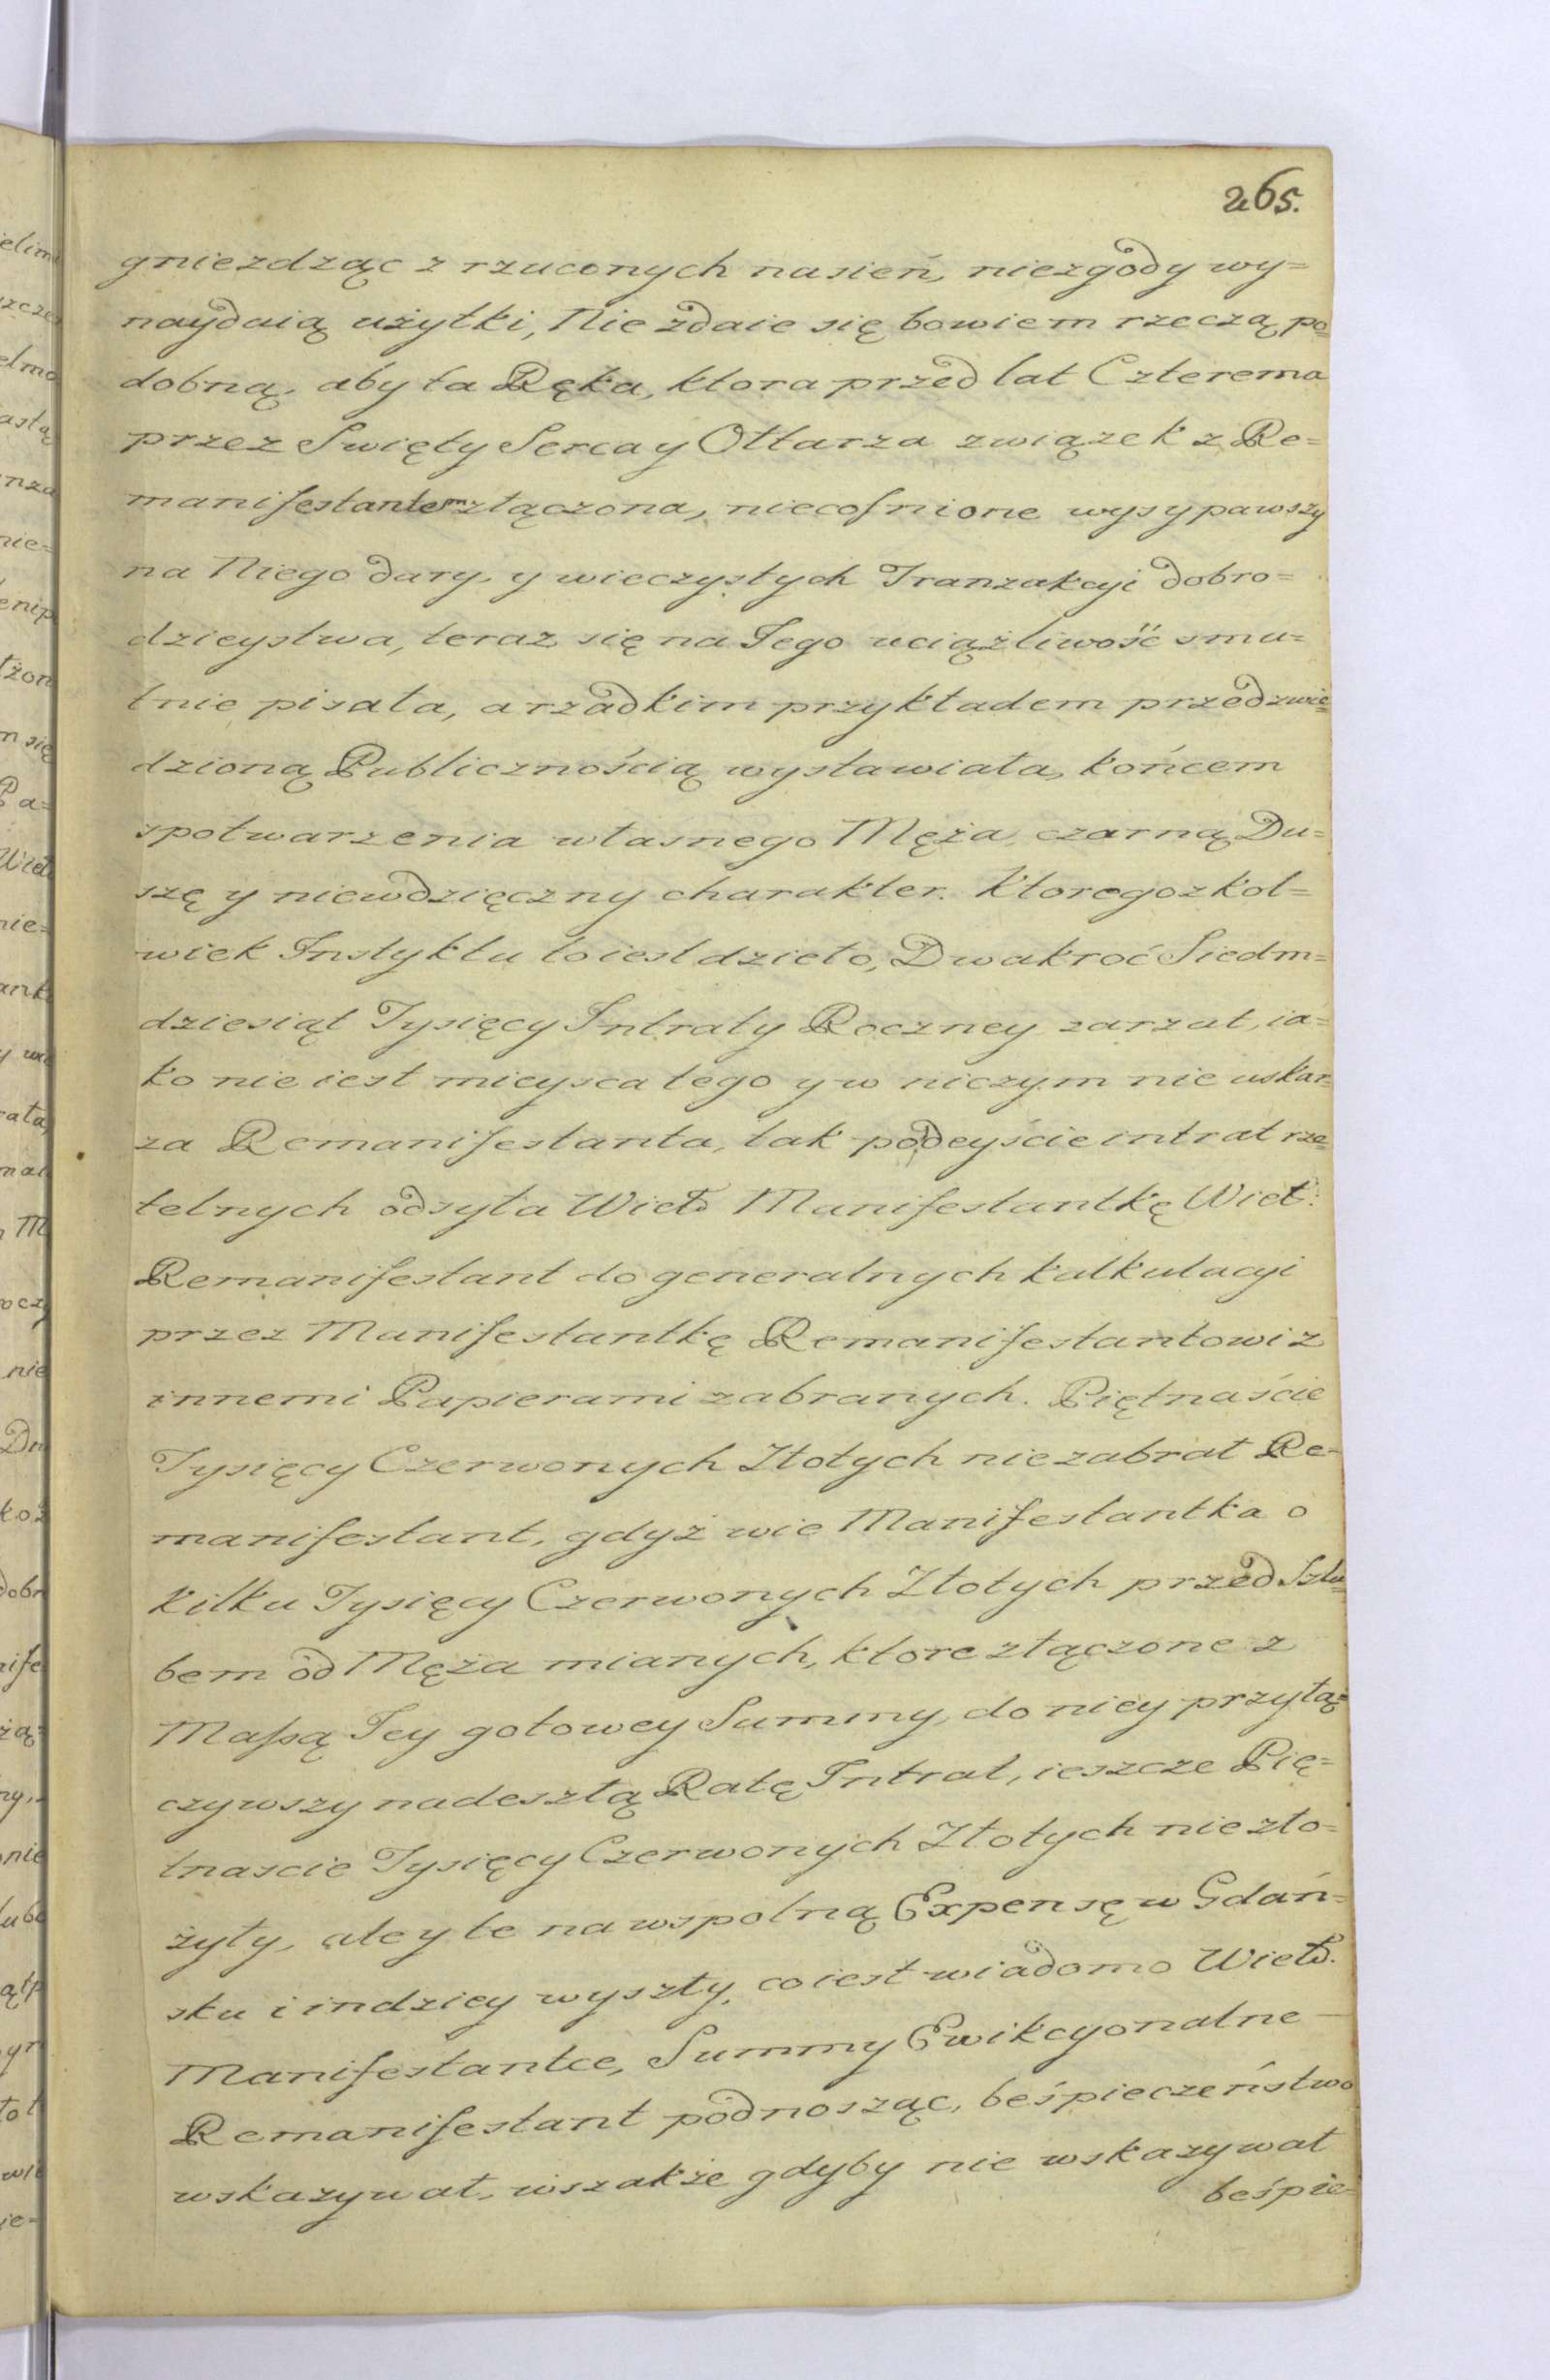 265.
gniezdząc z rzuconych nasień, niezgody wy=
nayduią użytki, Nie zdaie się bowiem rzeczą po=
dobną, aby ta Ręka, ktora przed lat Czterema
przez Swięty Serca y Ołtarza związek z Re=
manifestantem złączona, niecofnione wysypawszy
na Niego dary, y wieczystych Tranzakcyi dobro=
dzieystwa, teraz się na Jego uciążliwość smu=
tnie pisała, a rzadkim przykładem przed zwie=
dzioną Publicznością wystawiała, końcem
spotwarzenia własnego Męża, czarną Du=
szę y niewdzięczny charakter. Ktoregoz kol=
wiek Instyktu to iest dzieło, Dwakroć Siedm=
dziesiąt Tysięcy Intraty Roczney zarzut, ia=
ko nie iest mieysca tego y w niczym nie uskar=
za Remanifestanta, tak podeyście intrat rze=
telnych odsyła Wield Manifestantkę Wiel:
Remanifestant do generalnych kalkulacyi
przez Manifestantkę Remanifestantowi z
innemi Papierami zabranych. Piętnaście
Tysięcy Czerwonych Złotych nie zabrał Re=
manifestant, gdyż wie Manifestantka o
kilku Tysięcy Czerwonych Złotych przed Szlu=
bem od Męża mianych, ktore złączone z
Massą Jey gotowey Summy, do niey przyłą=
czywszy nadeszłą Ratę Intrat, ieszcze Pię=
tnascie Tysięcy Czerwonych Złotych nie zło=
żyły, ale y te na wspolną Expensę w Gdań=
sku i indziey wyszły, co iest wiadomo Wield.
Manifestantce, Summy Ewikcyonalne
Remanifestant podnosząc, beśpieczeństwo
wskazywał, wszakże gdyby nie wskazywał
beśpie=